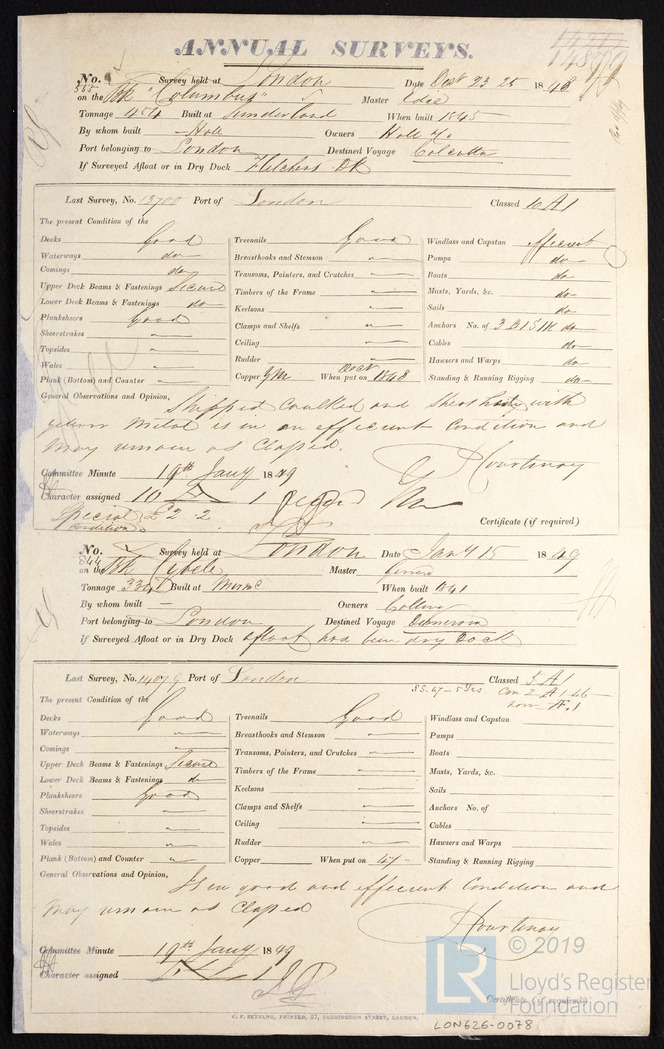 ANNUAL SURVEYS.
14899
No. 565 Survey held at London Date Oct 23 25 1848
on the Bk "Columbus" Master Edie
Tonnage 454 Built at Sunderland When built 1845
By whom built Hall Owners Hall & Co
Port belonging to London Destined Voyage Calcutta
If Surveyed Afloat or in Dry Dock Fletchers DK
Last Survey, No. 13700 Port of London Classed 10 A1
The present Condition of the
Decks Good Treenails Good Windlass and Capstan Efficient
Waterways do Breasthooks and Stemson " Pumps do
Comings do Transoms, Pointers, and Crutches " Boats do
Upper Deck Beams & Fastenings Secure Timbers of the Frame " Masts, Yards, &c. do
Lower Deck Beams & Fastenings do Keelsons " Sails do
Planksheers Good Clamps and Shelfs " Anchors No. of 3 B 1 S 1 K do
Sheerstrakes " Ceiling " Cables do
Topsides " Rudder " Hawsers and Warps do
Wales " Copper YM When put on Oct 1848 Standing & Running Rigging do
Plank (Bottom) and Counter "
General Observations and Opinion, Stripped Caulked and Sheathed with
yellow Metal is in an efficient Condition and
May remain as Classed.
Courtenay
Committee Minute 19th Jany 1849
Character assigned 10 A 1
Special £2.2
Conditions
Certificate (if required)
No. 844 Survey held at London Date Jany 15 1849
on the Bk Cybele Master
Tonnage Built at When built 1841
By whom built — Owners
Port belonging to London Destined Voyage Demerara
If Surveyed Afloat or in Dry Dock afloat had been dry Dock
Last Survey, No. 14079 Port of London Classed 5 A1
SS. 47 - 5 Yrs Con 2 A 1.46
now Æ.1
The present Condition of the
Decks Good Treenails Good Windlass and Capstan
Waterways " Breasthooks and Stemson " Pumps
Comings " Transoms, Pointers, and Crutches " Boats
Upper Deck Beams & Fastenings Secure Timbers of the Frame " Masts, Yards, &c.
Lower Deck Beams & Fastenings do Keelsons " Sails
Planksheers Good Clamps and Shelfs " Anchors No. of
Sheerstrakes " Ceiling " Cables
Topsides " Rudder " Hawsers and Warps
Wales " Copper When put on 47 Standing & Running Rigging
Plank (Bottom) and Counter "
General Observations and Opinion, Is in good and efficient Condition and
May remain as Classed
Courtenay
Committee Minute 19th Jany 1849
Character assigned
Certificate (if required)
C. F. SEYFANG, PRINTER, 57, FARRINGDON STREET, LONDON.
LR © 2019
Lloyd's Register
Foundation
LON626-0078